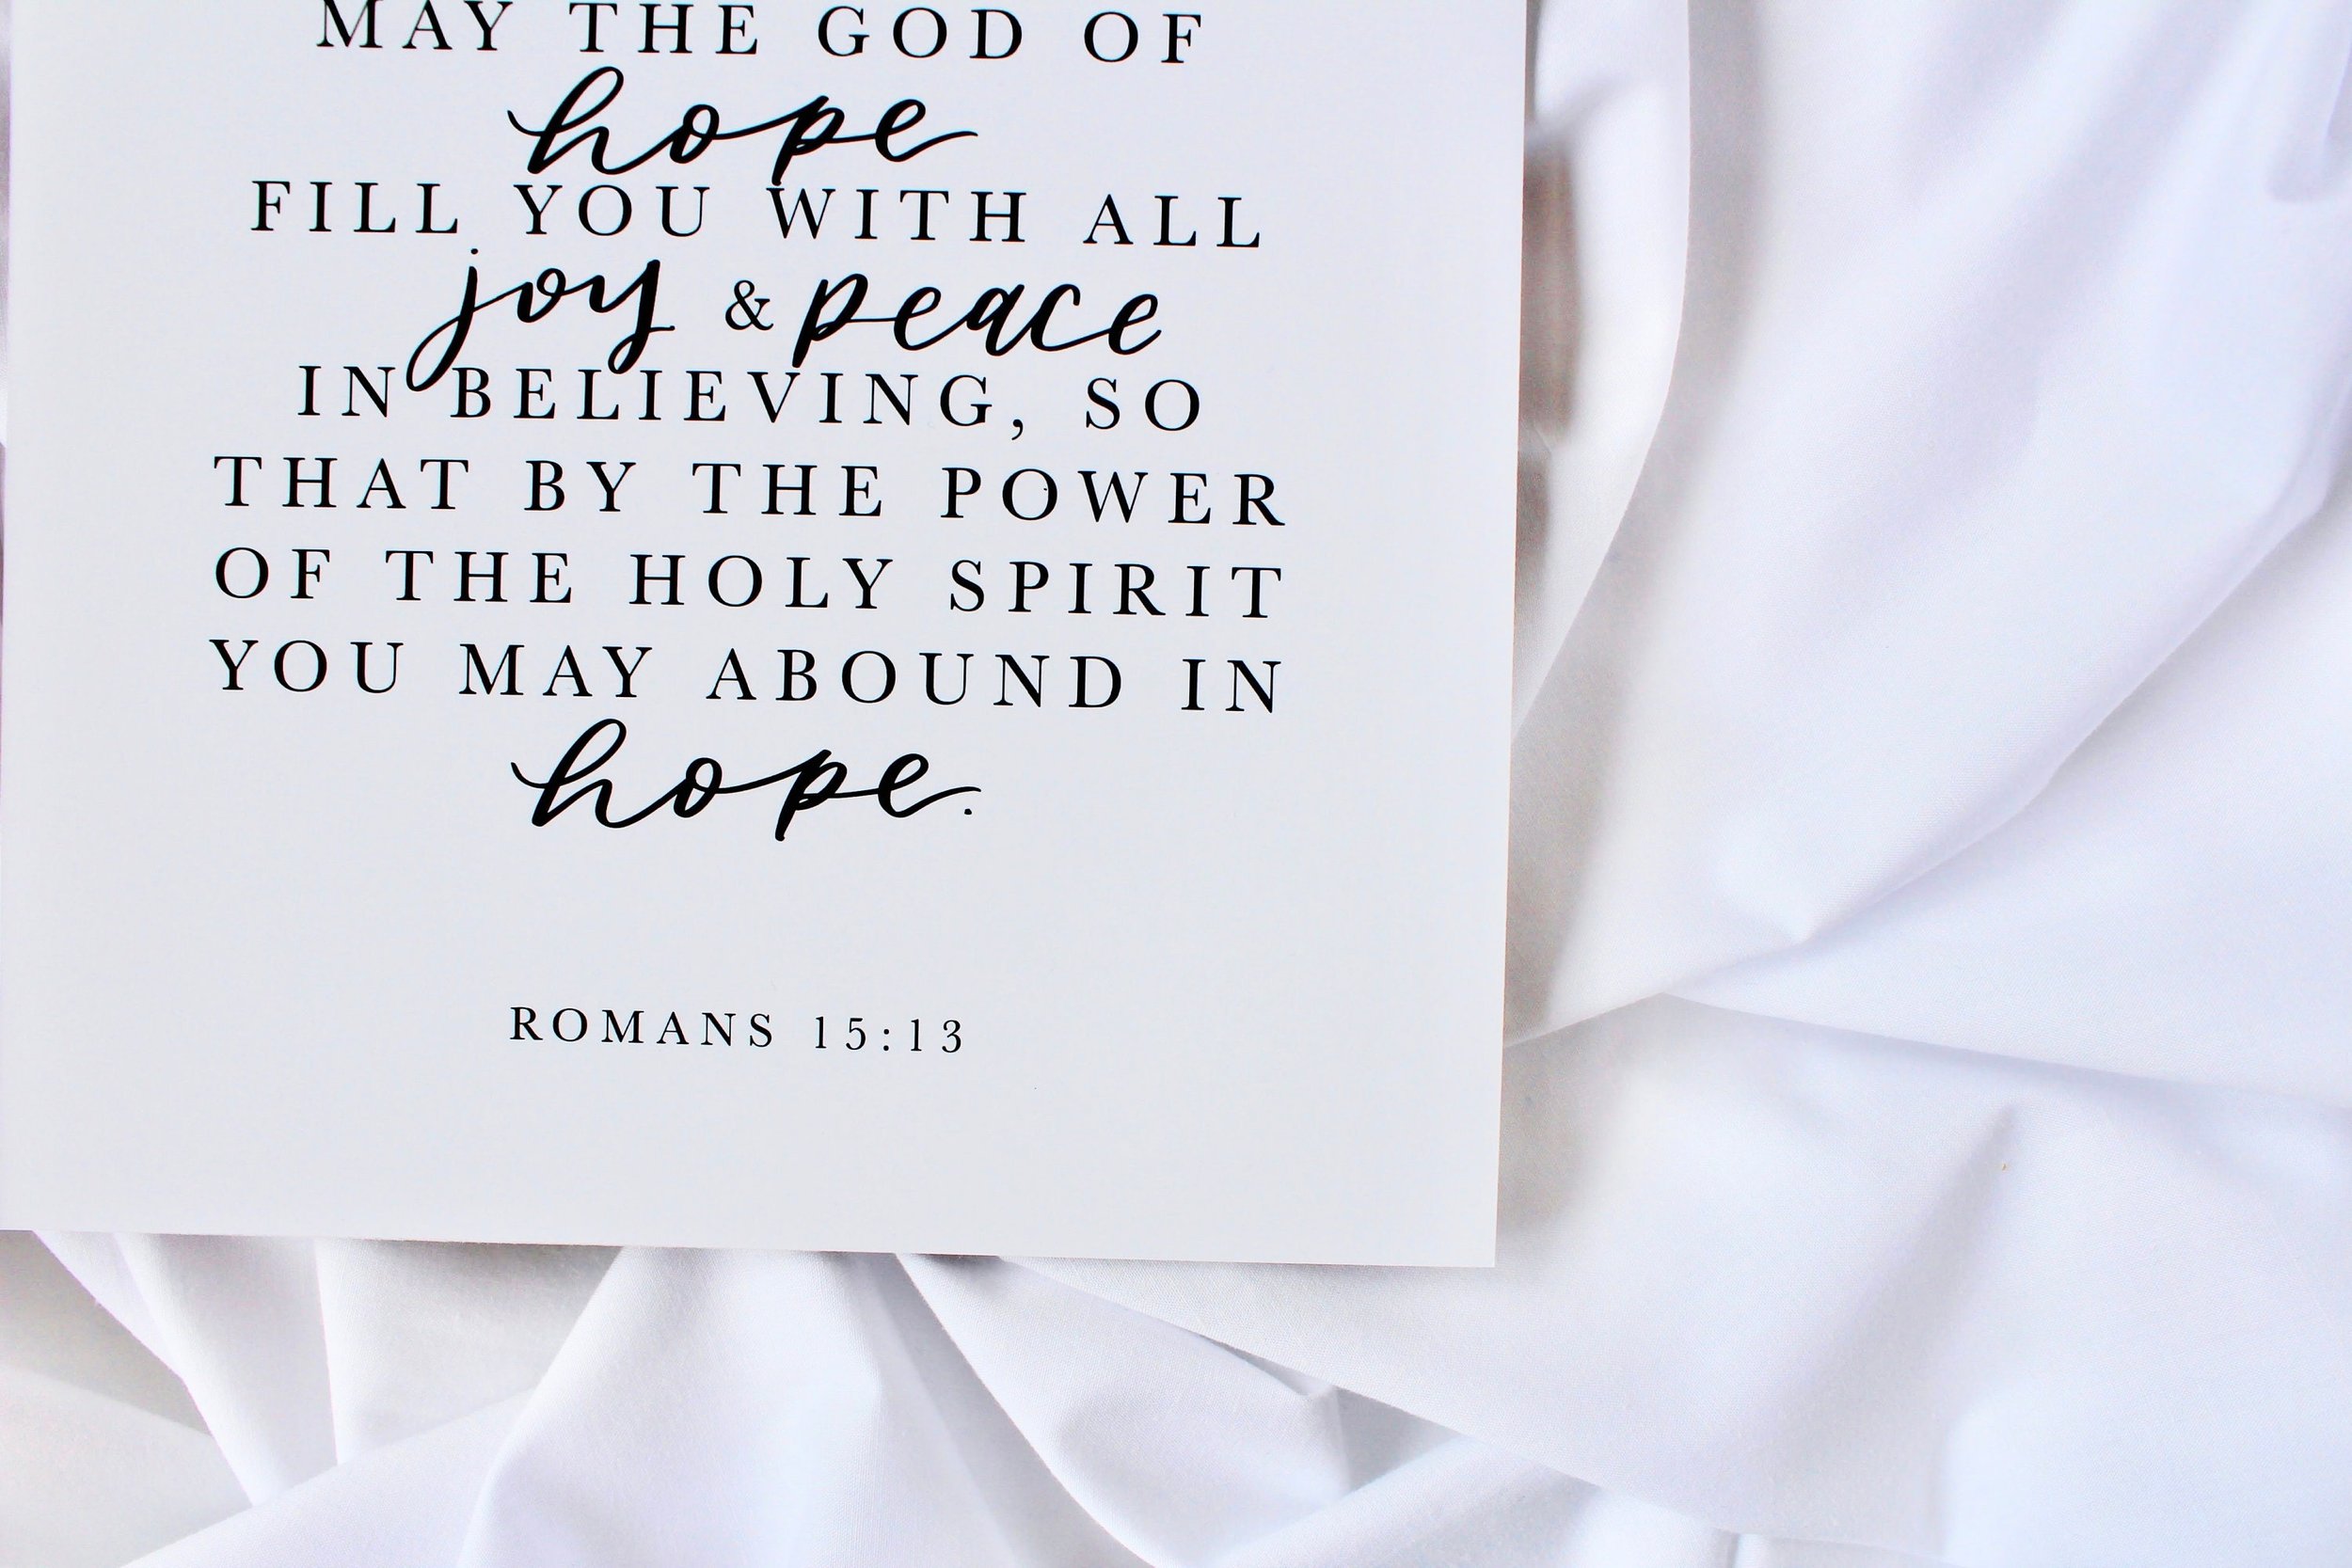 MAY THE GOD OF
hope
FILL YOU WITH ALL
joy & peace
IN BELIEVING, SO
THAT BY THE POWER
OF THE HOLY SPIRIT
YOU MAY ABOUND IN
hope.
ROMANS 15:13